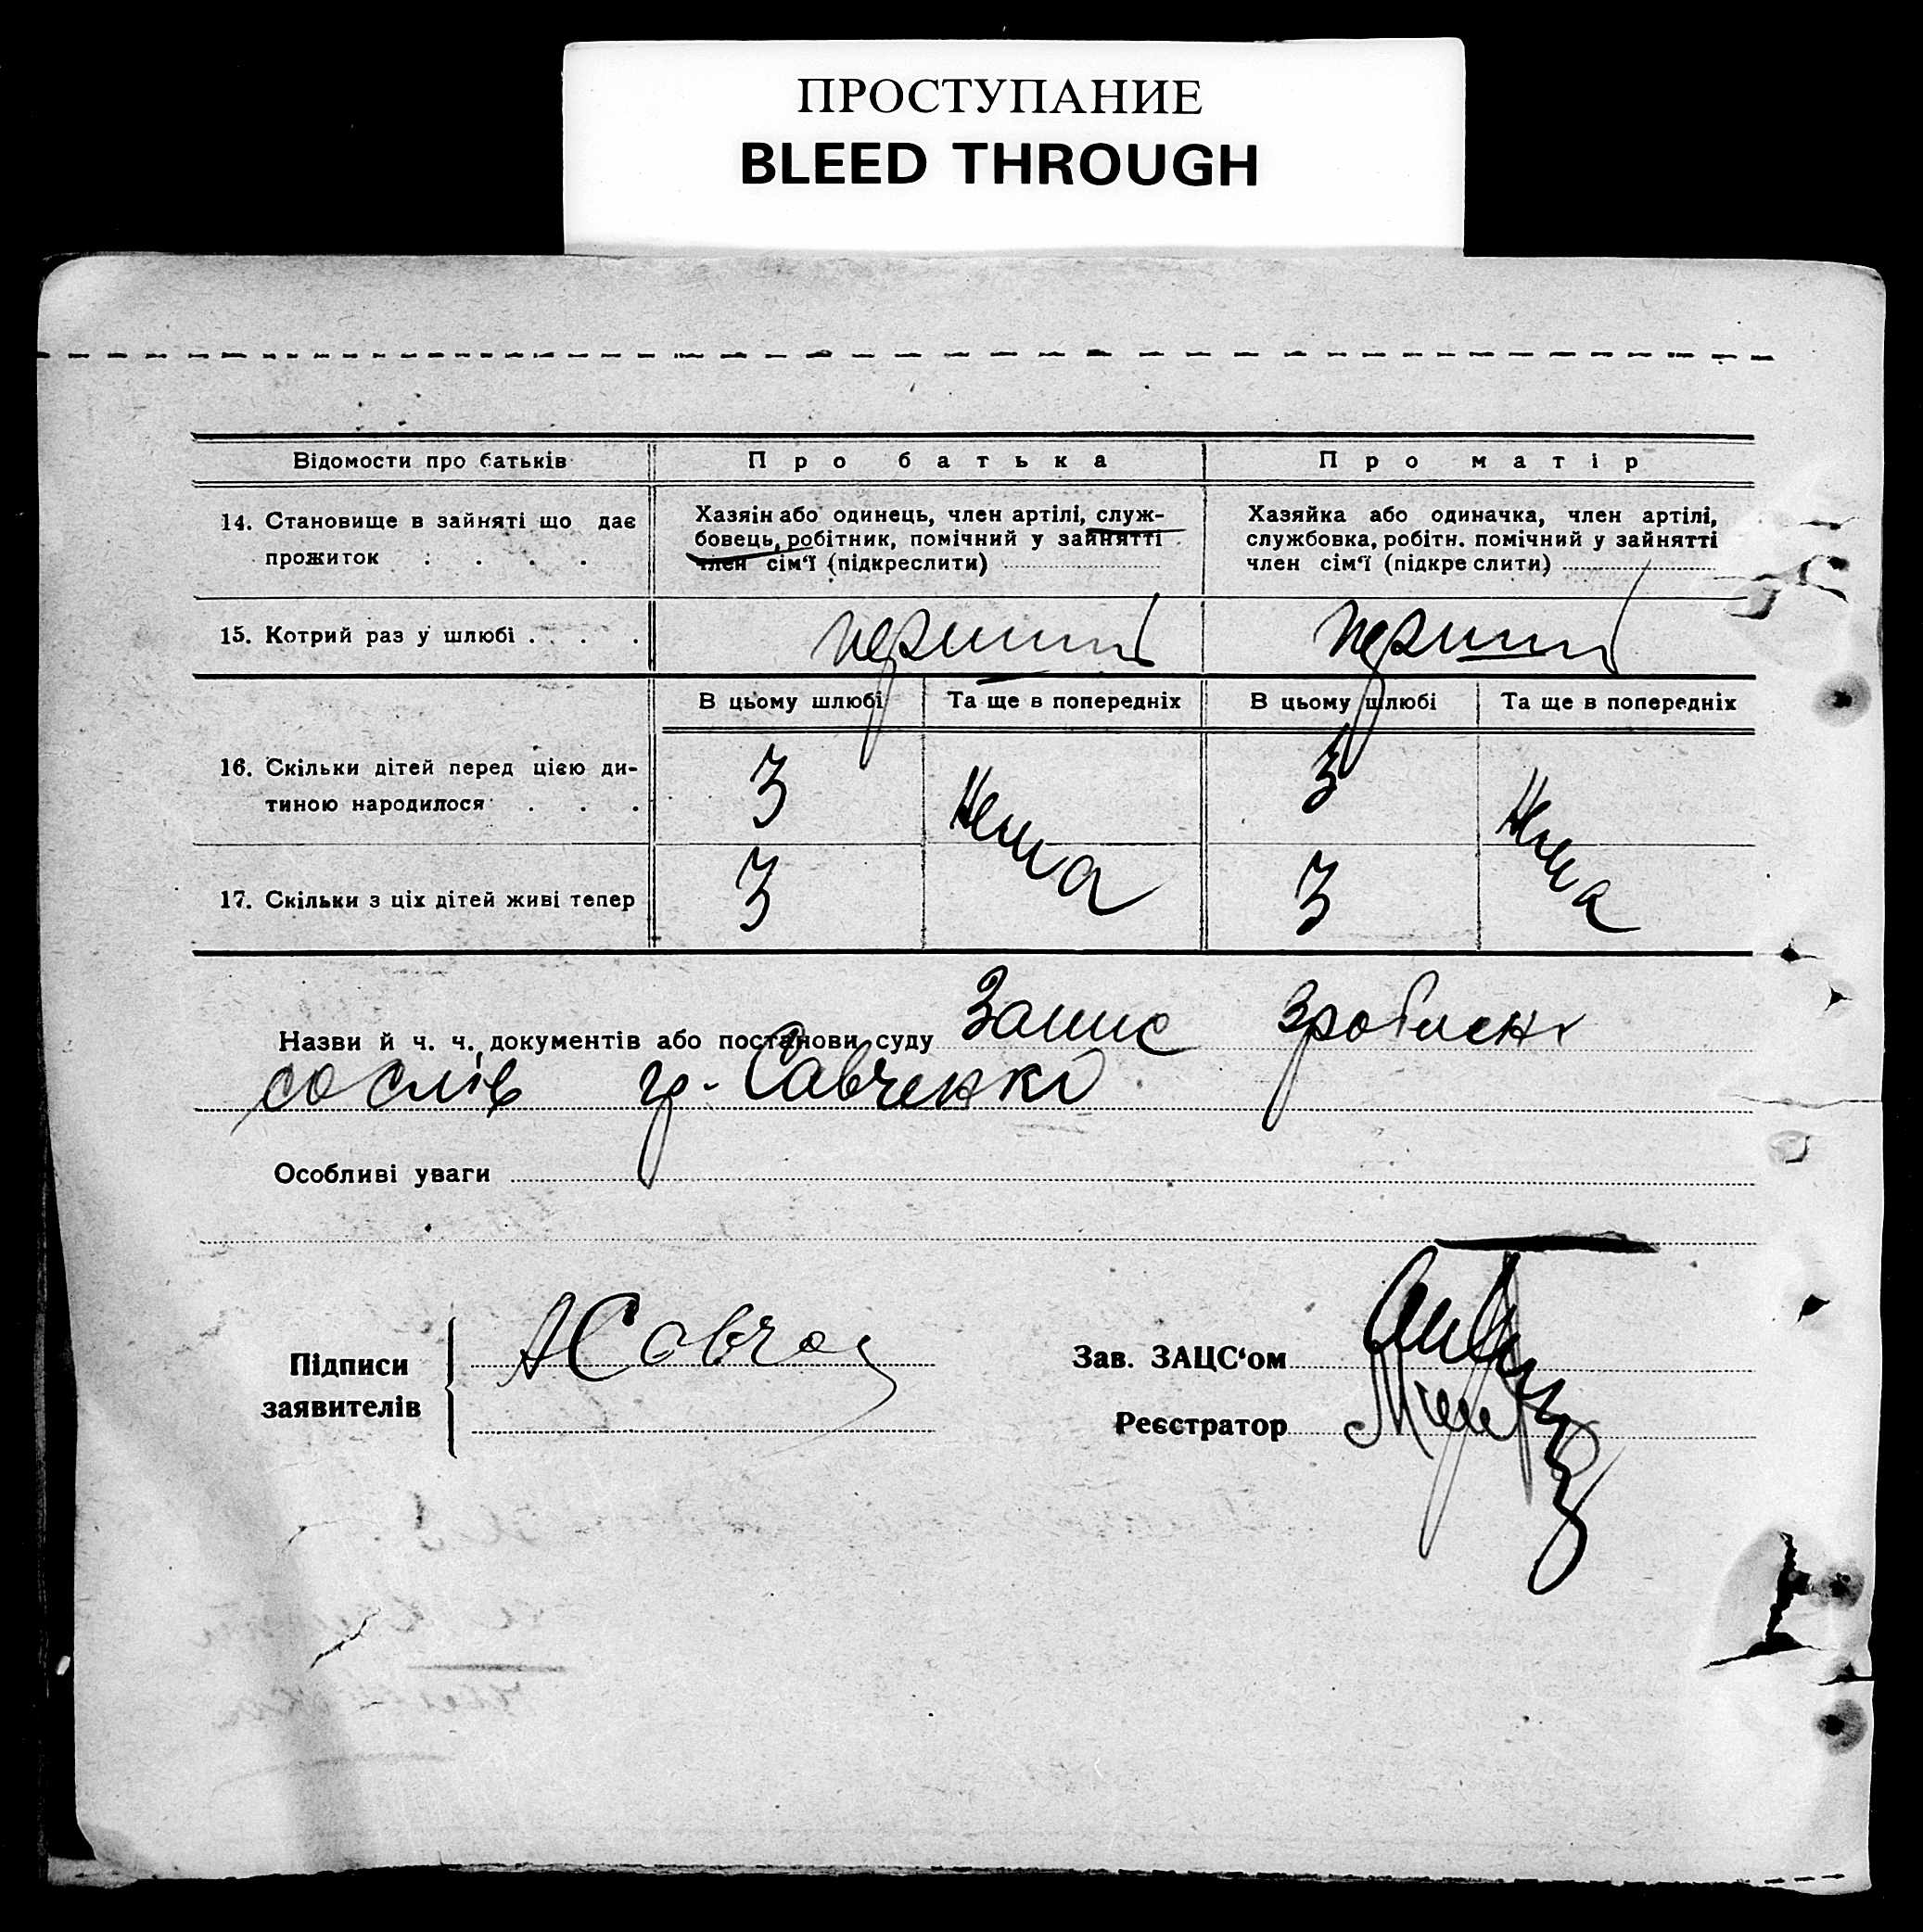 ПРОСТУПАНИЕ
BLEED THROUGH
Відомости про батьків Про батька Про матір
14. Становище в зайняті що дає прожиток . . . .
Хазяін або одинець, член артілі, служ-
бовець, робітник, помічний у зайнятті
член сім‘ї (підкреслити)
Хазяйка або одиначка, член артілі,
службовка, робітн. помічний у зайнятті
член сім‘ї (підкреслити)
15. Котрий раз у шлюбі . . . перший перший
В цьому шлюбі Та ще в попередніх В цьому шлюбі Та ще в попередніх
16. Скільки дітей перед цією ди-
тиною народилося . . . 3 нема 3 нема
17. Скільки з ціх дітей живі тепер 3 3
Назви й ч. ч. документів або постанови суду Запис зроблено
со слів гр. Савченко
Особливі уваги
Підписи
заявителів
АСавч
Зав. ЗАЦС‘ом
Реєстратор